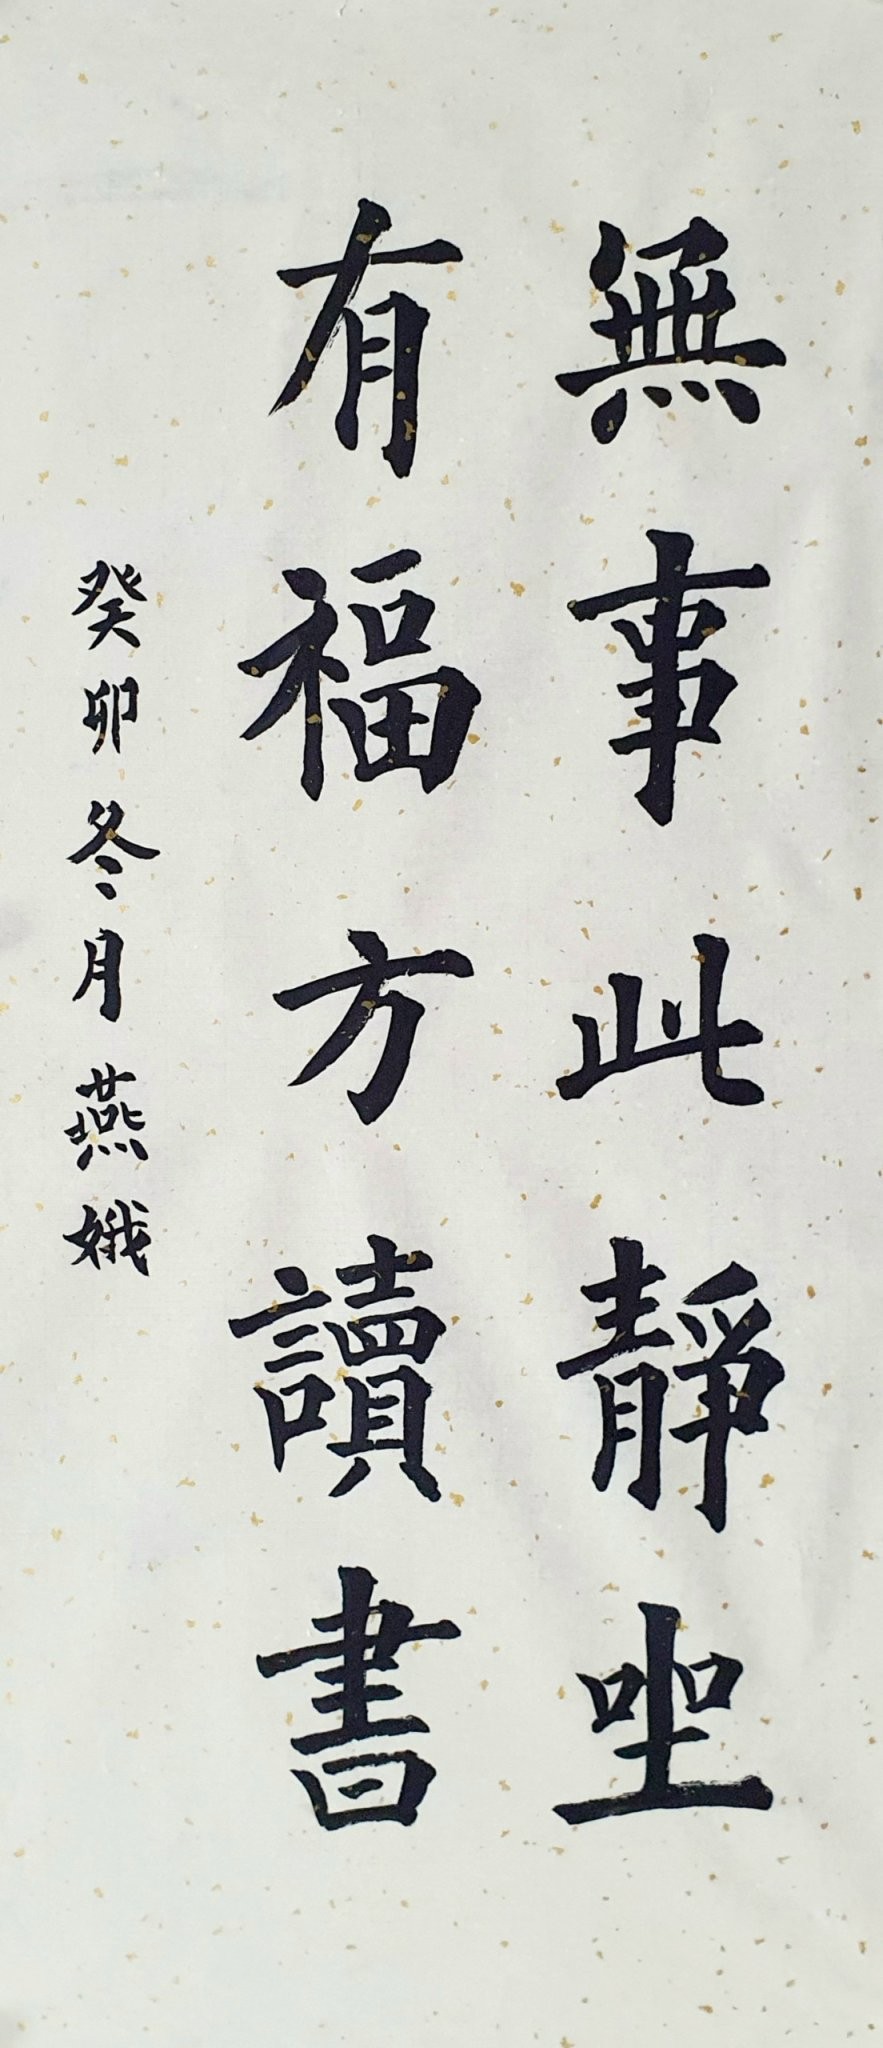 無事此靜坐
有福方讀書
癸卯冬月燕娥